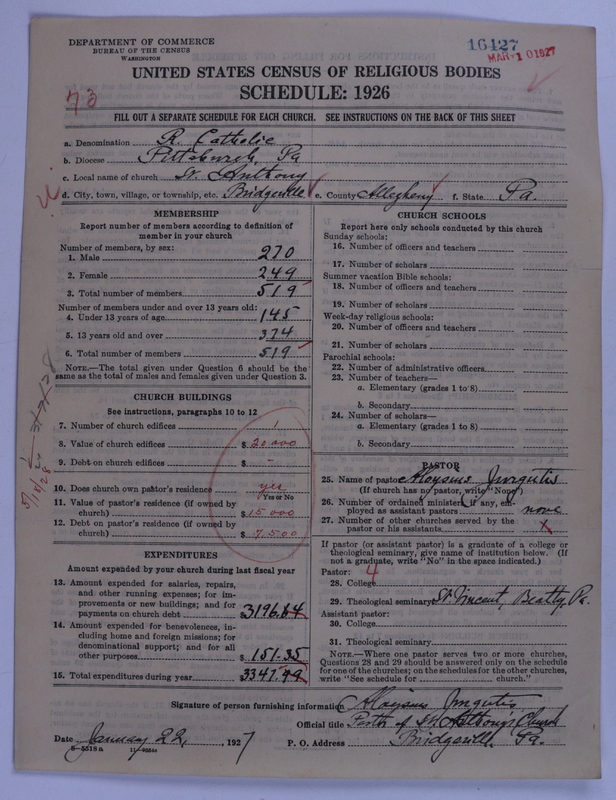 DEPARTMENT OF COMMERCE
BUREAU OF THE CENSUS
WASHINGTON
16427
MAR 1 01927
UNITED STATES CENSUS OF RELIGIOUS BODIES
SCHEDULE: 1926
73
FILL OUT A SEPARATE SCHEDULE FOR EACH CHURCH. SEE INSTRUCTIONS ON THE BACK OF THIS SHEET
a. Denomination R. Catholic
b. Diocese Pittsburgh, Pa
c. Local name of church St. Anthony
d. City, town, village, or township, etc. Bridgeville e. County Allegheny f. State Pa.
MEMBERSHIP
Report number of members according to definition of
member in your church
Number of members, by sex:
1. Male 270
2. Female 249
3. Total number of members 519
Number of members under and over 13 years old:
4. Under 13 years of age 145
5. 13 years old and over 374
6. Total number of members 519
NOTE.—The total given under Question 6 should be the
same as the total of males and females given under Question 3.
CHURCH BUILDINGS
See instructions, paragraphs 10 to 12
7. Number of church edifices 1
8. Value of church edifices $ 20 000
9. Debt on church edifices $ –
10. Does church own pastor's residence yes
Yes or No
11. Value of pastor's residence (if owned by
church) $ 15 000
12. Debt on pastor's residence (if owned by
church) $ 7.500
EXPENDITURES
Amount expended by your church during last fiscal year
13. Amount expended for salaries, repairs,
and other running expenses; for im-
provements or new buildings; and for
payments on church debt $ 3196.64
14. Amount expended for benevolences, in-
cluding home and foreign missions; for
denominational support; and for all
other purposes $ 151.35
15. Total expenditures during year $ 3347.99
CHURCH SCHOOLS
Report here only schools conducted by this church
Sunday schools:
16. Number of officers and teachers
17. Number of scholars
Summer vacation Bible schools:
18. Number of officers and teachers
19. Number of scholars
Week-day religious schools:
20. Number of officers and teachers
21. Number of scholars
Parochial schools:
22. Number of administrative officers
23. Number of teachers—
a. Elementary (grades 1 to 8)
b. Secondary
24. Number of scholars—
a. Elementary (grades 1 to 8)
b. Secondary
PASTOR
25. Name of pastor Aloysius Jurgutis
(If church has no pastor, write "None")
26. Number of ordained ministers, if any, em-
ployed as assistant pastors none
27. Number of other churches served by the
pastor or his assistants x
If pastor (or assistant pastor) is a graduate of a college or
theological seminary, give name of institution below. (If
not a graduate, write "No" in the space indicated.)
Pastor: 4
28. College
29. Theological seminary St. Vincent, Beatty, Pa.
Assistant pastor:
30. College
31. Theological seminary
NOTE.—Where one pastor serves two or more churches,
Questions 28 and 29 should be answered only on the schedule
for one of the churches; on the schedules for the other churches,
write "See schedule for church."
Signature of person furnishing information Aloysius Jurgutis
Official title of St. Anthony Church
Date January 22, 1927 P. O. Address Bridgeville, Pa.